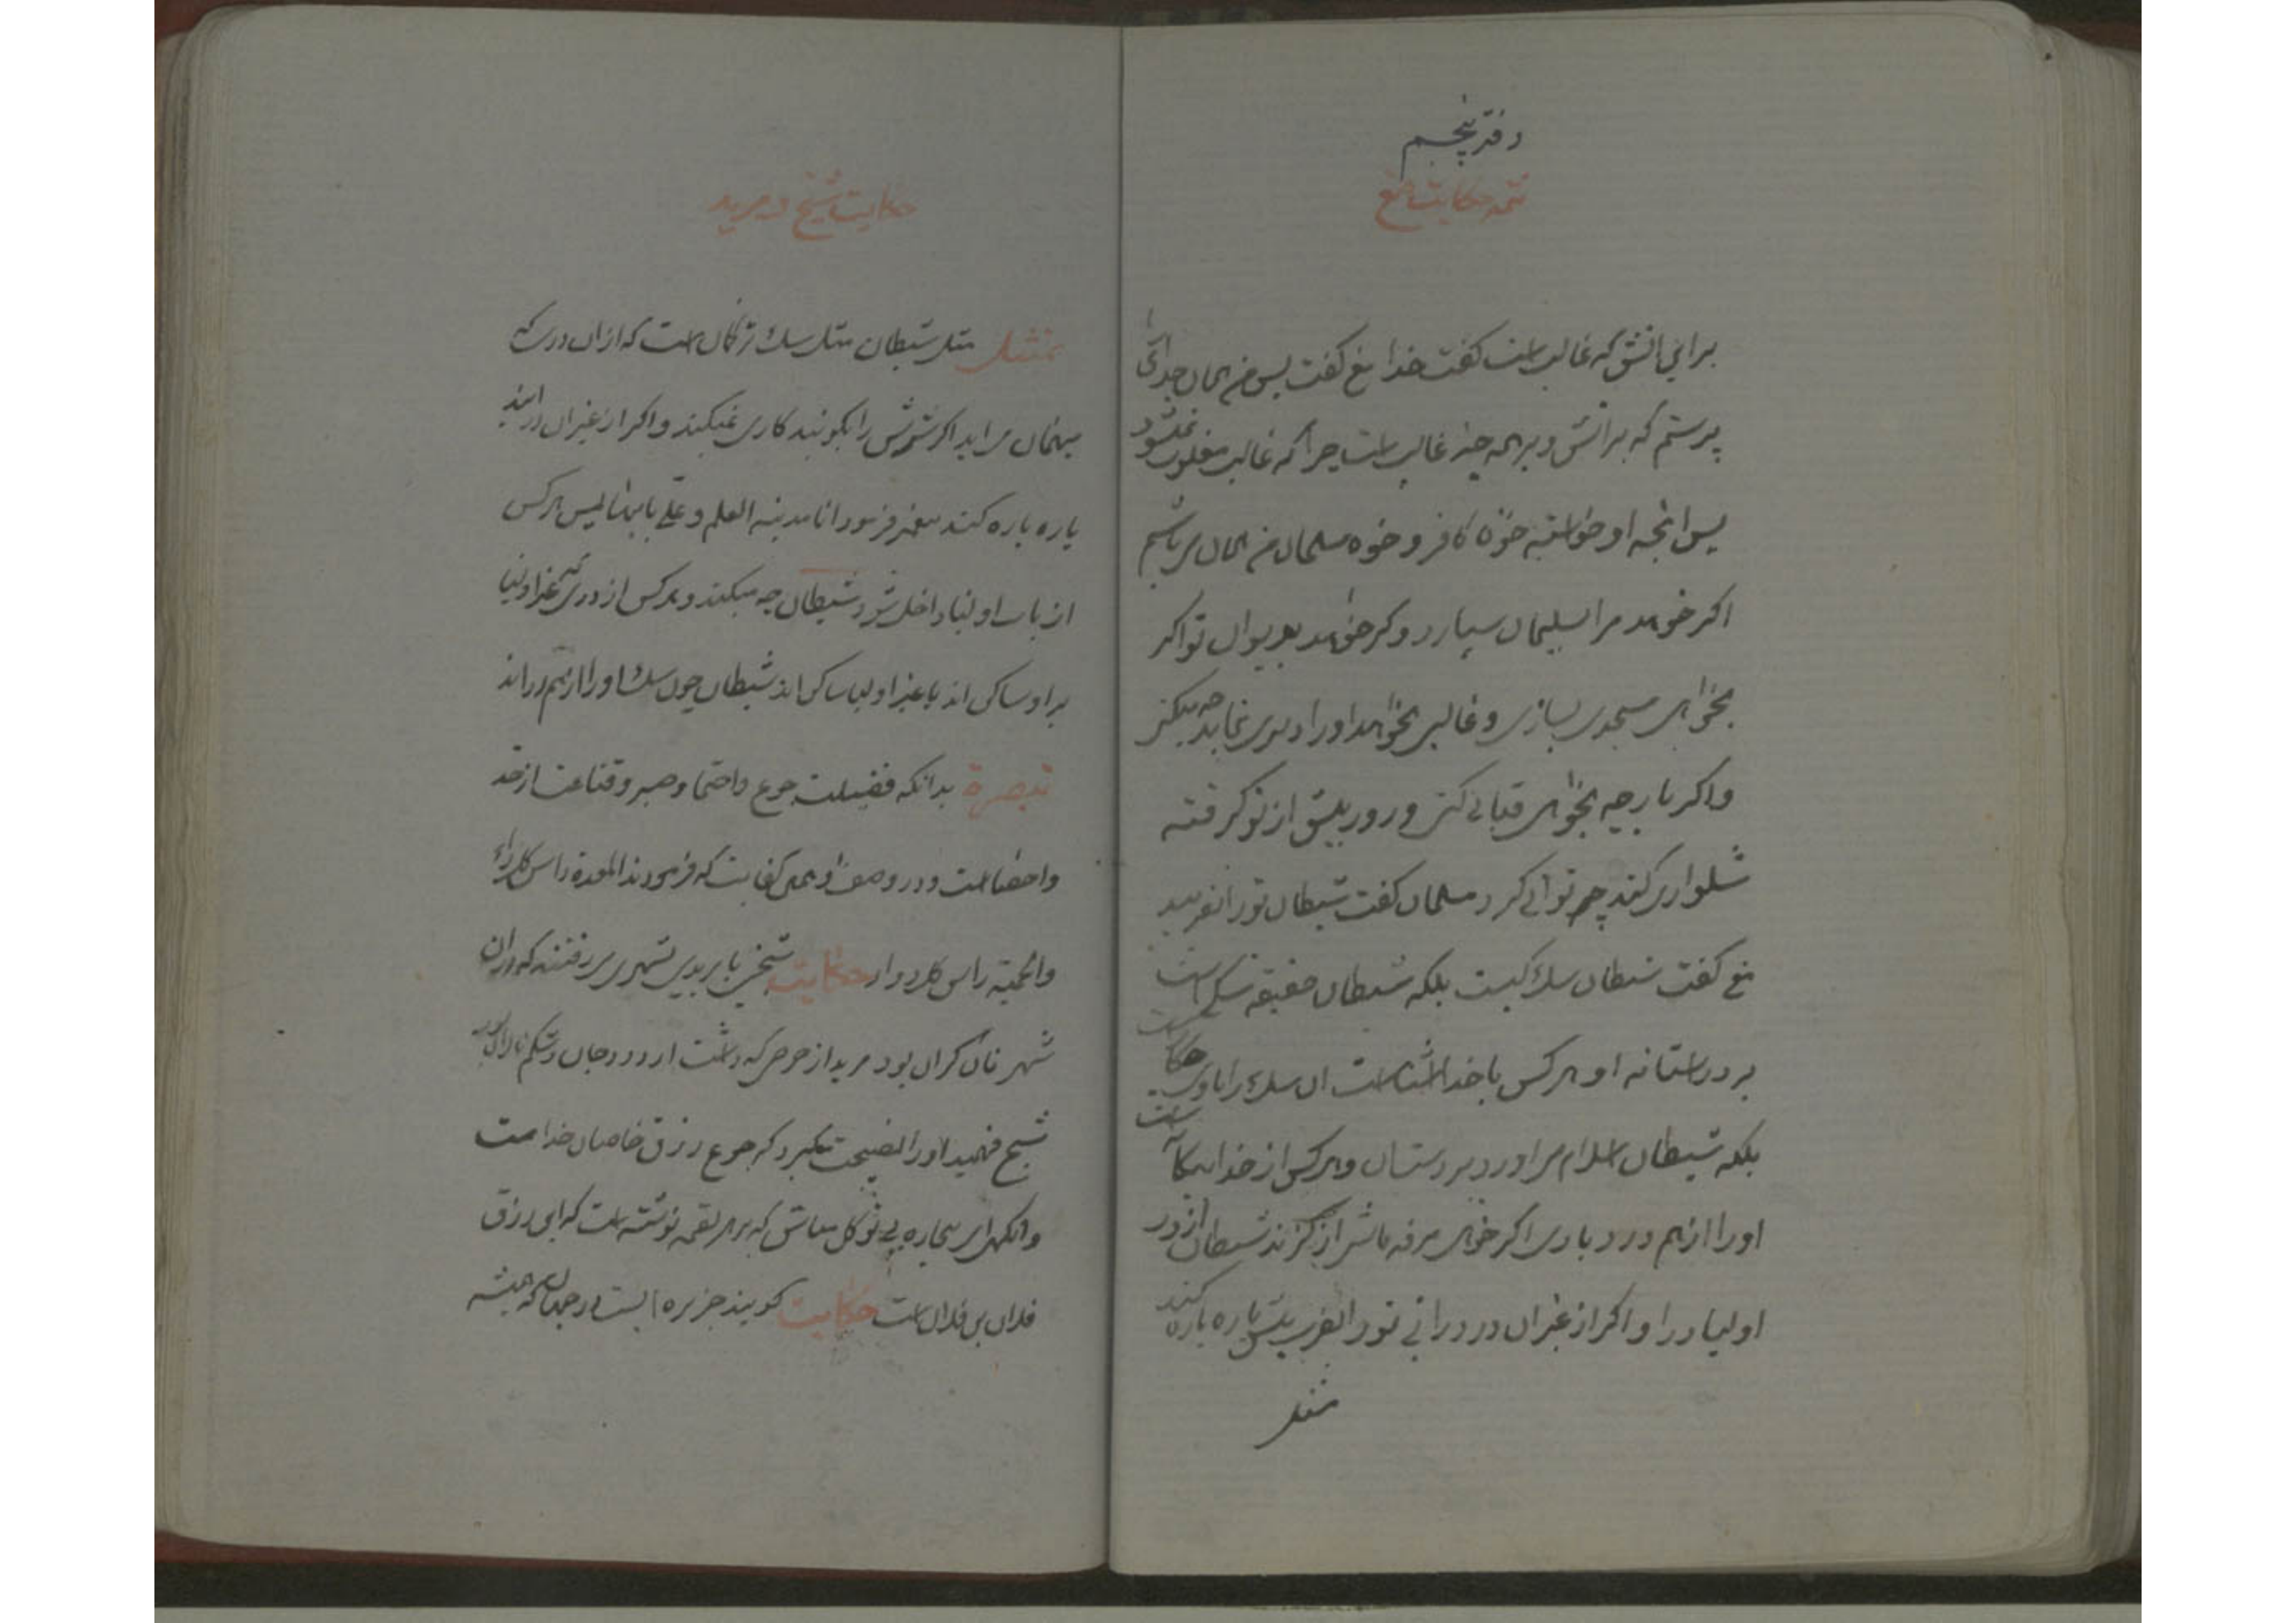 دفتر پنجم
تتمه حکایت مغ
برای اتش که غالب است گفت خدا مغ گفت پس من همان خدای
پرستم که بر اتش و بر همه چیز غالب است چرا که غالب مغلوب نمیشود
پس انچه او خواسته خواه کافر و خواه مسلمان من همان می باشم
اکر خواهد مرا بسلیمان سپارد و کر خواهد بدیوان تو اکر
بخواهی مسجدی بسازی و غالبی بخواهد او را دیری نماید چه میکنی
و اکر پارچه بخواهی قبائی کنی و زوربیش از تو کرفته
شلواری کند چه توانی کرد مسلمان گفت شیطان تو را نفریبد
مغ گفت شیطان سک کیست بلکه شیطان حقیقة سکی است
بر در استانه او هر کس با خدا اشنا است ان سک را با وی چکار است
بلکه شیطان اسلام می اورد بر دستان و هر کس از خدا بیکانه است
او را از هم درد باری اکر خواهی مرفه باشی از کزند شیطان از در
اولیا درا و اکر از غیر ان در درائی تو را نفریب بلش پاره پاره کند
مثل
حکایت شیخ و مرید
تمثیل مثل شیطان مثل سک ترکمان است که از ان دری که
میهمان می اید اکر شومش را بگویند کاری نمیکند و اکر از غیر ان درایند
پاره پاره کند پیغمبر فرمود انا مدینه العلم و علی بابها پس هر کس
از باب اولیا داخل شود شیطان چه میکند و هر کس از دری غیر اولیا
براو ساکن اند با غیر اولیا ساکن اند شیطان چون سک او را از هم دراند
تبصرة بدانکه فضیلت جوع و احتما و صبر و قناعت از حد
و احصا است و در وصف او همین کفایت که فرمودند المعدة راس کل داء
والحمیة راس کل دواء حکایت شیخی با مریدی بشهری می رفتند که در ان
شهر نان کران بود مرید از حرص که داشت
شیخ فهمید او را نصیحت میکرد که جوع رزق خاصان خدا است
وانکهی ای بیچاره بی توکل مباش که بر هر لقمه نوشته است که این رزق
فلان بن فلان است حکایت کویند جزیره ایست در جهان که همیشه